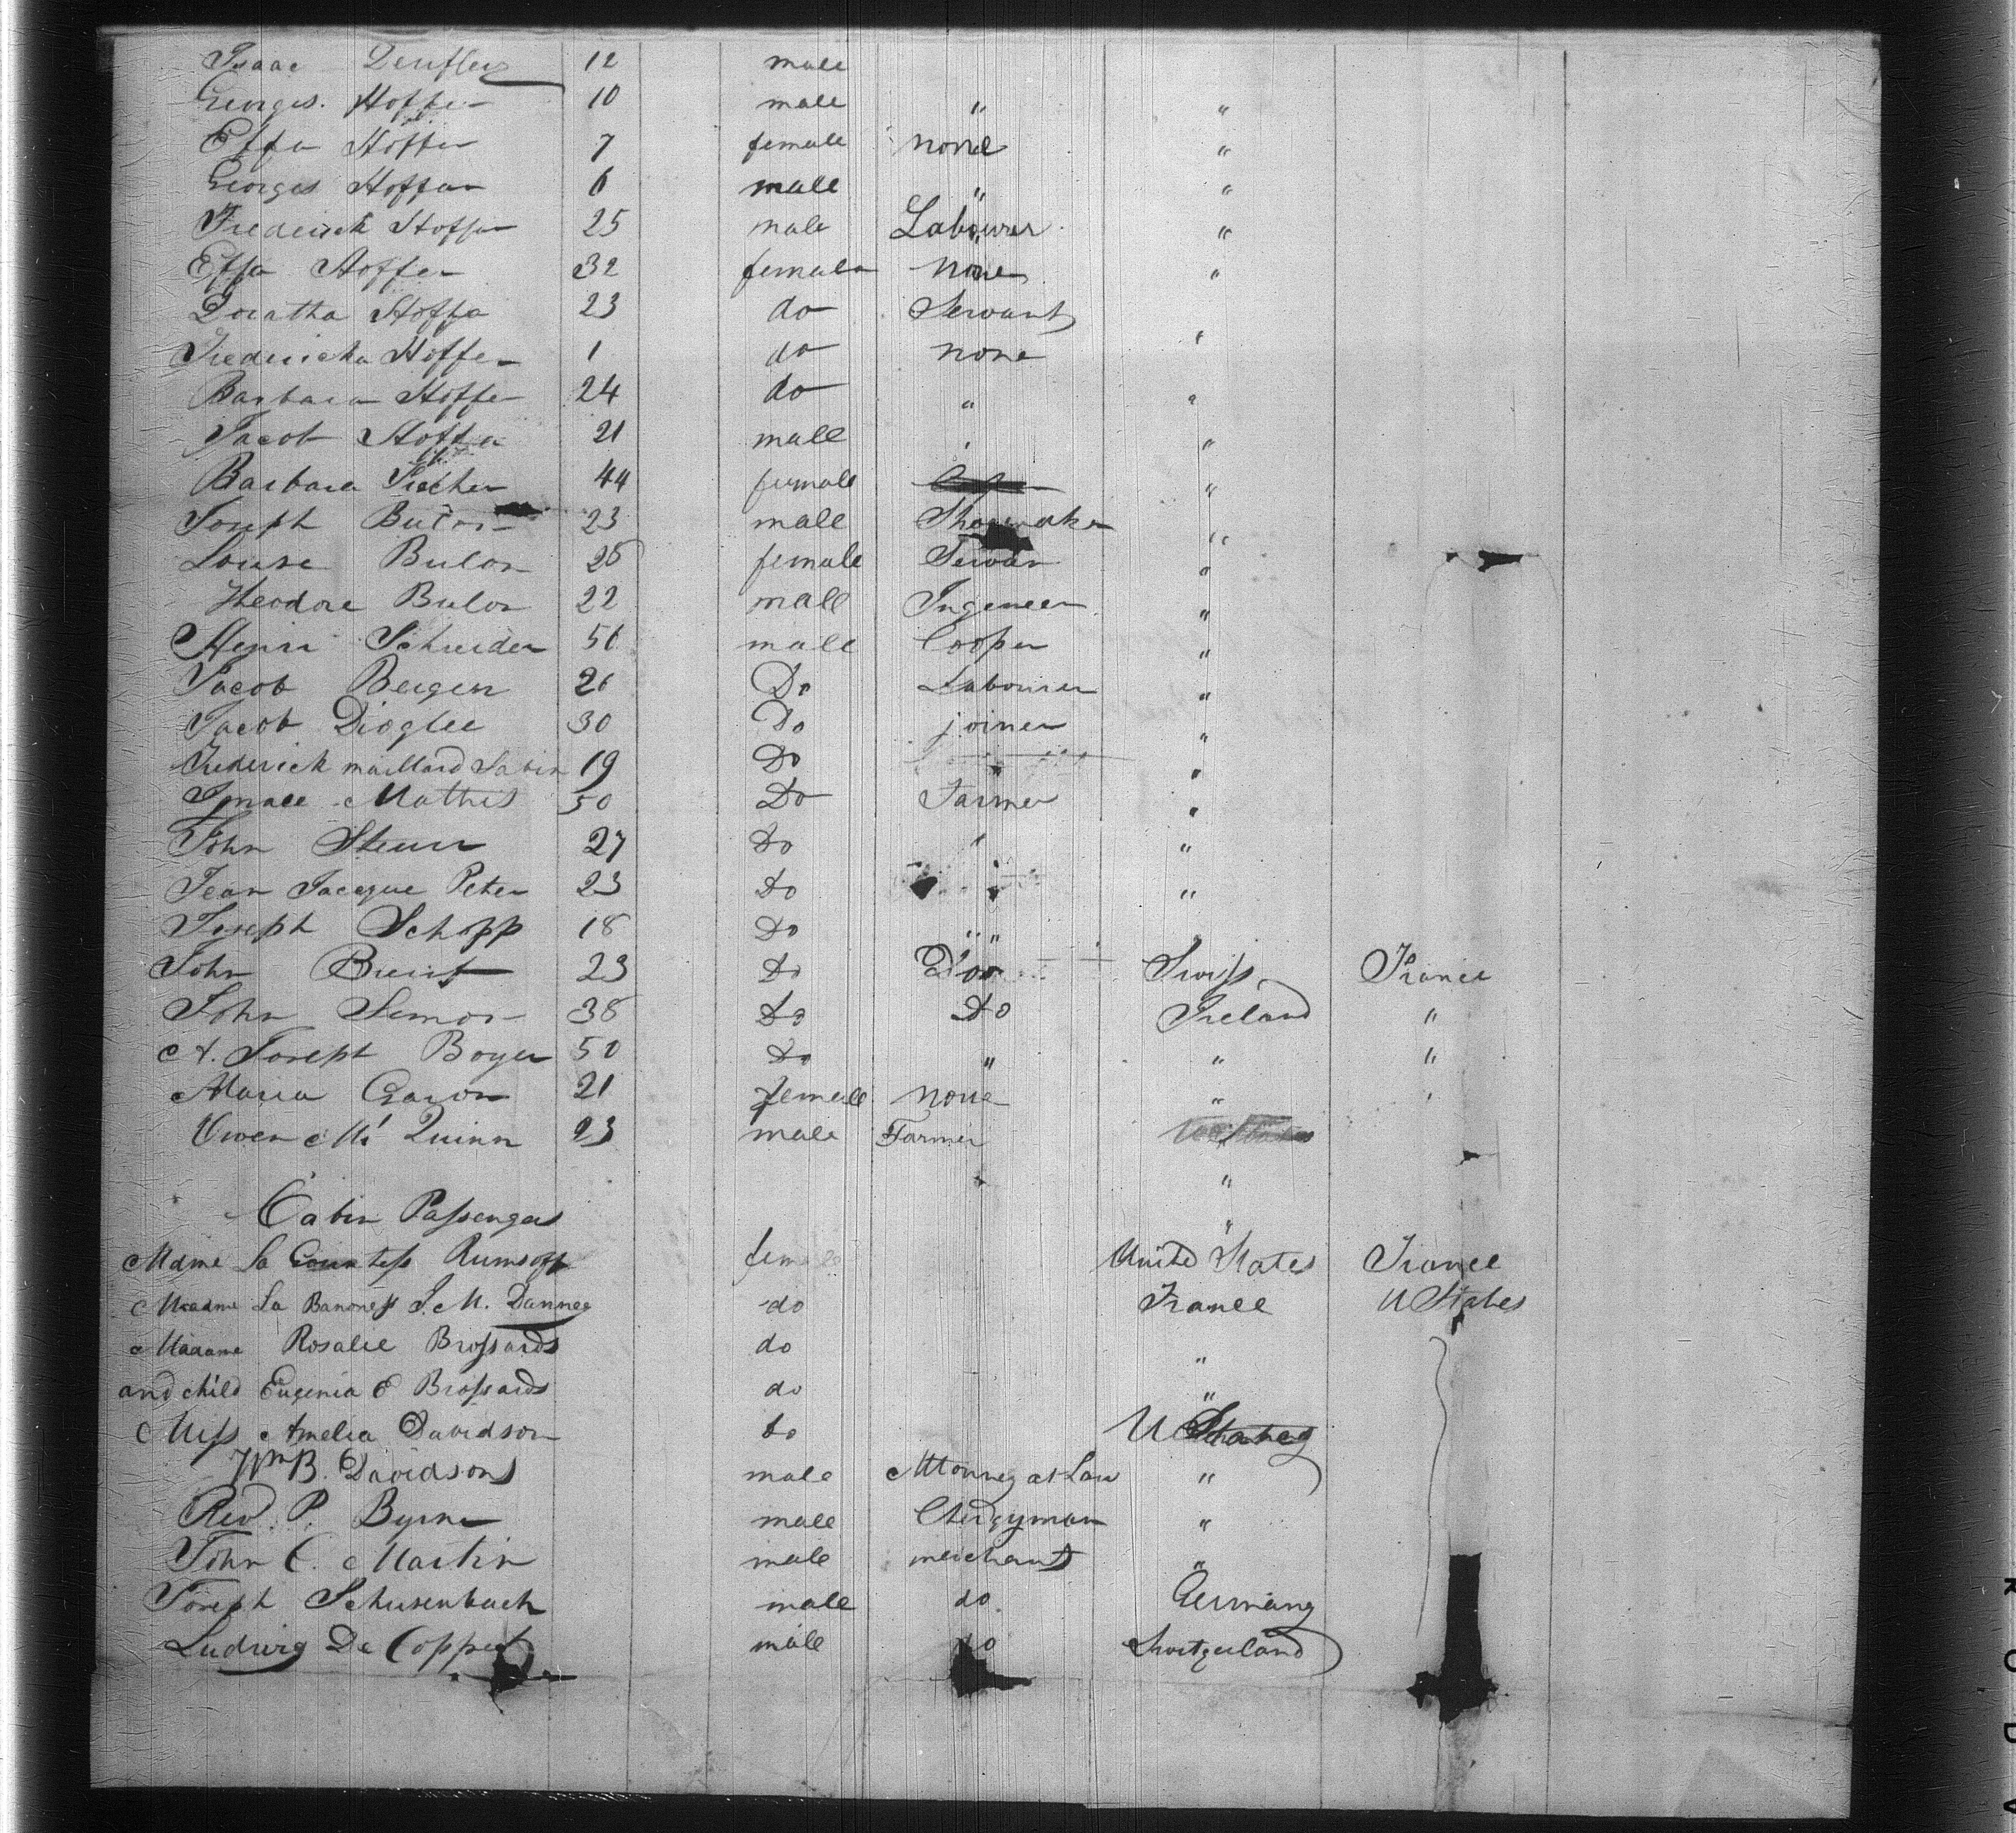 Isaac 12 male
Georges. Hoffer 10 male " "
Effa Hoffer 7 female none "
Georges Hoffer 6 male " "
Frederick Hoffer 25 male Labourer "
Effa Hoffer 32 female none "
Doratha Hoffa 23 do Servant "
Fredericka Hoffer 1 do none
Barbara Hoffer 24 do " "
Jacob Hoffa 21 male " "
Barbara 44 female "
Joseph Bulon 23 male Shoemaker "
Louise Bulon 28 female "
Theodore Bulon 22 male Ingeneer "
Henri Schneider 50 male Cooper "
Jacob Bergen 26 Do Labourer "
Jacob Dioglee 30 Do joiner "
Frederick maillard Sabin 19 Do " "
Ignace Mathis 50 Do Farmer "
John 27 Do " "
Jean Jacque Peter 23 Do " "
Joseph Schopp 18 Do "
John 23 Do Do Swiss France
John Simon 38 Do Do Ireland "
A. Joseph Boyer 50 Do " " "
Maria Garon 21 female none " "
Owen Mc Quinn 23 male Farmer
"
Cabin Passengers "
Mdme La Countess female United States France
Madme La Baroness S. M. Dannee do France U States
Madame Rosalie Brossards do "
and child Eugenia E Brossards do "
Miss Amelia Davidson do U States
Wm B. Davidson male Attorney at Law "
Rev. P. Byrne male Clergyman "
John C. Martin male merchant "
Joseph Schusenbach male do. Germany
Ludwig De Coppet male do Switzerland